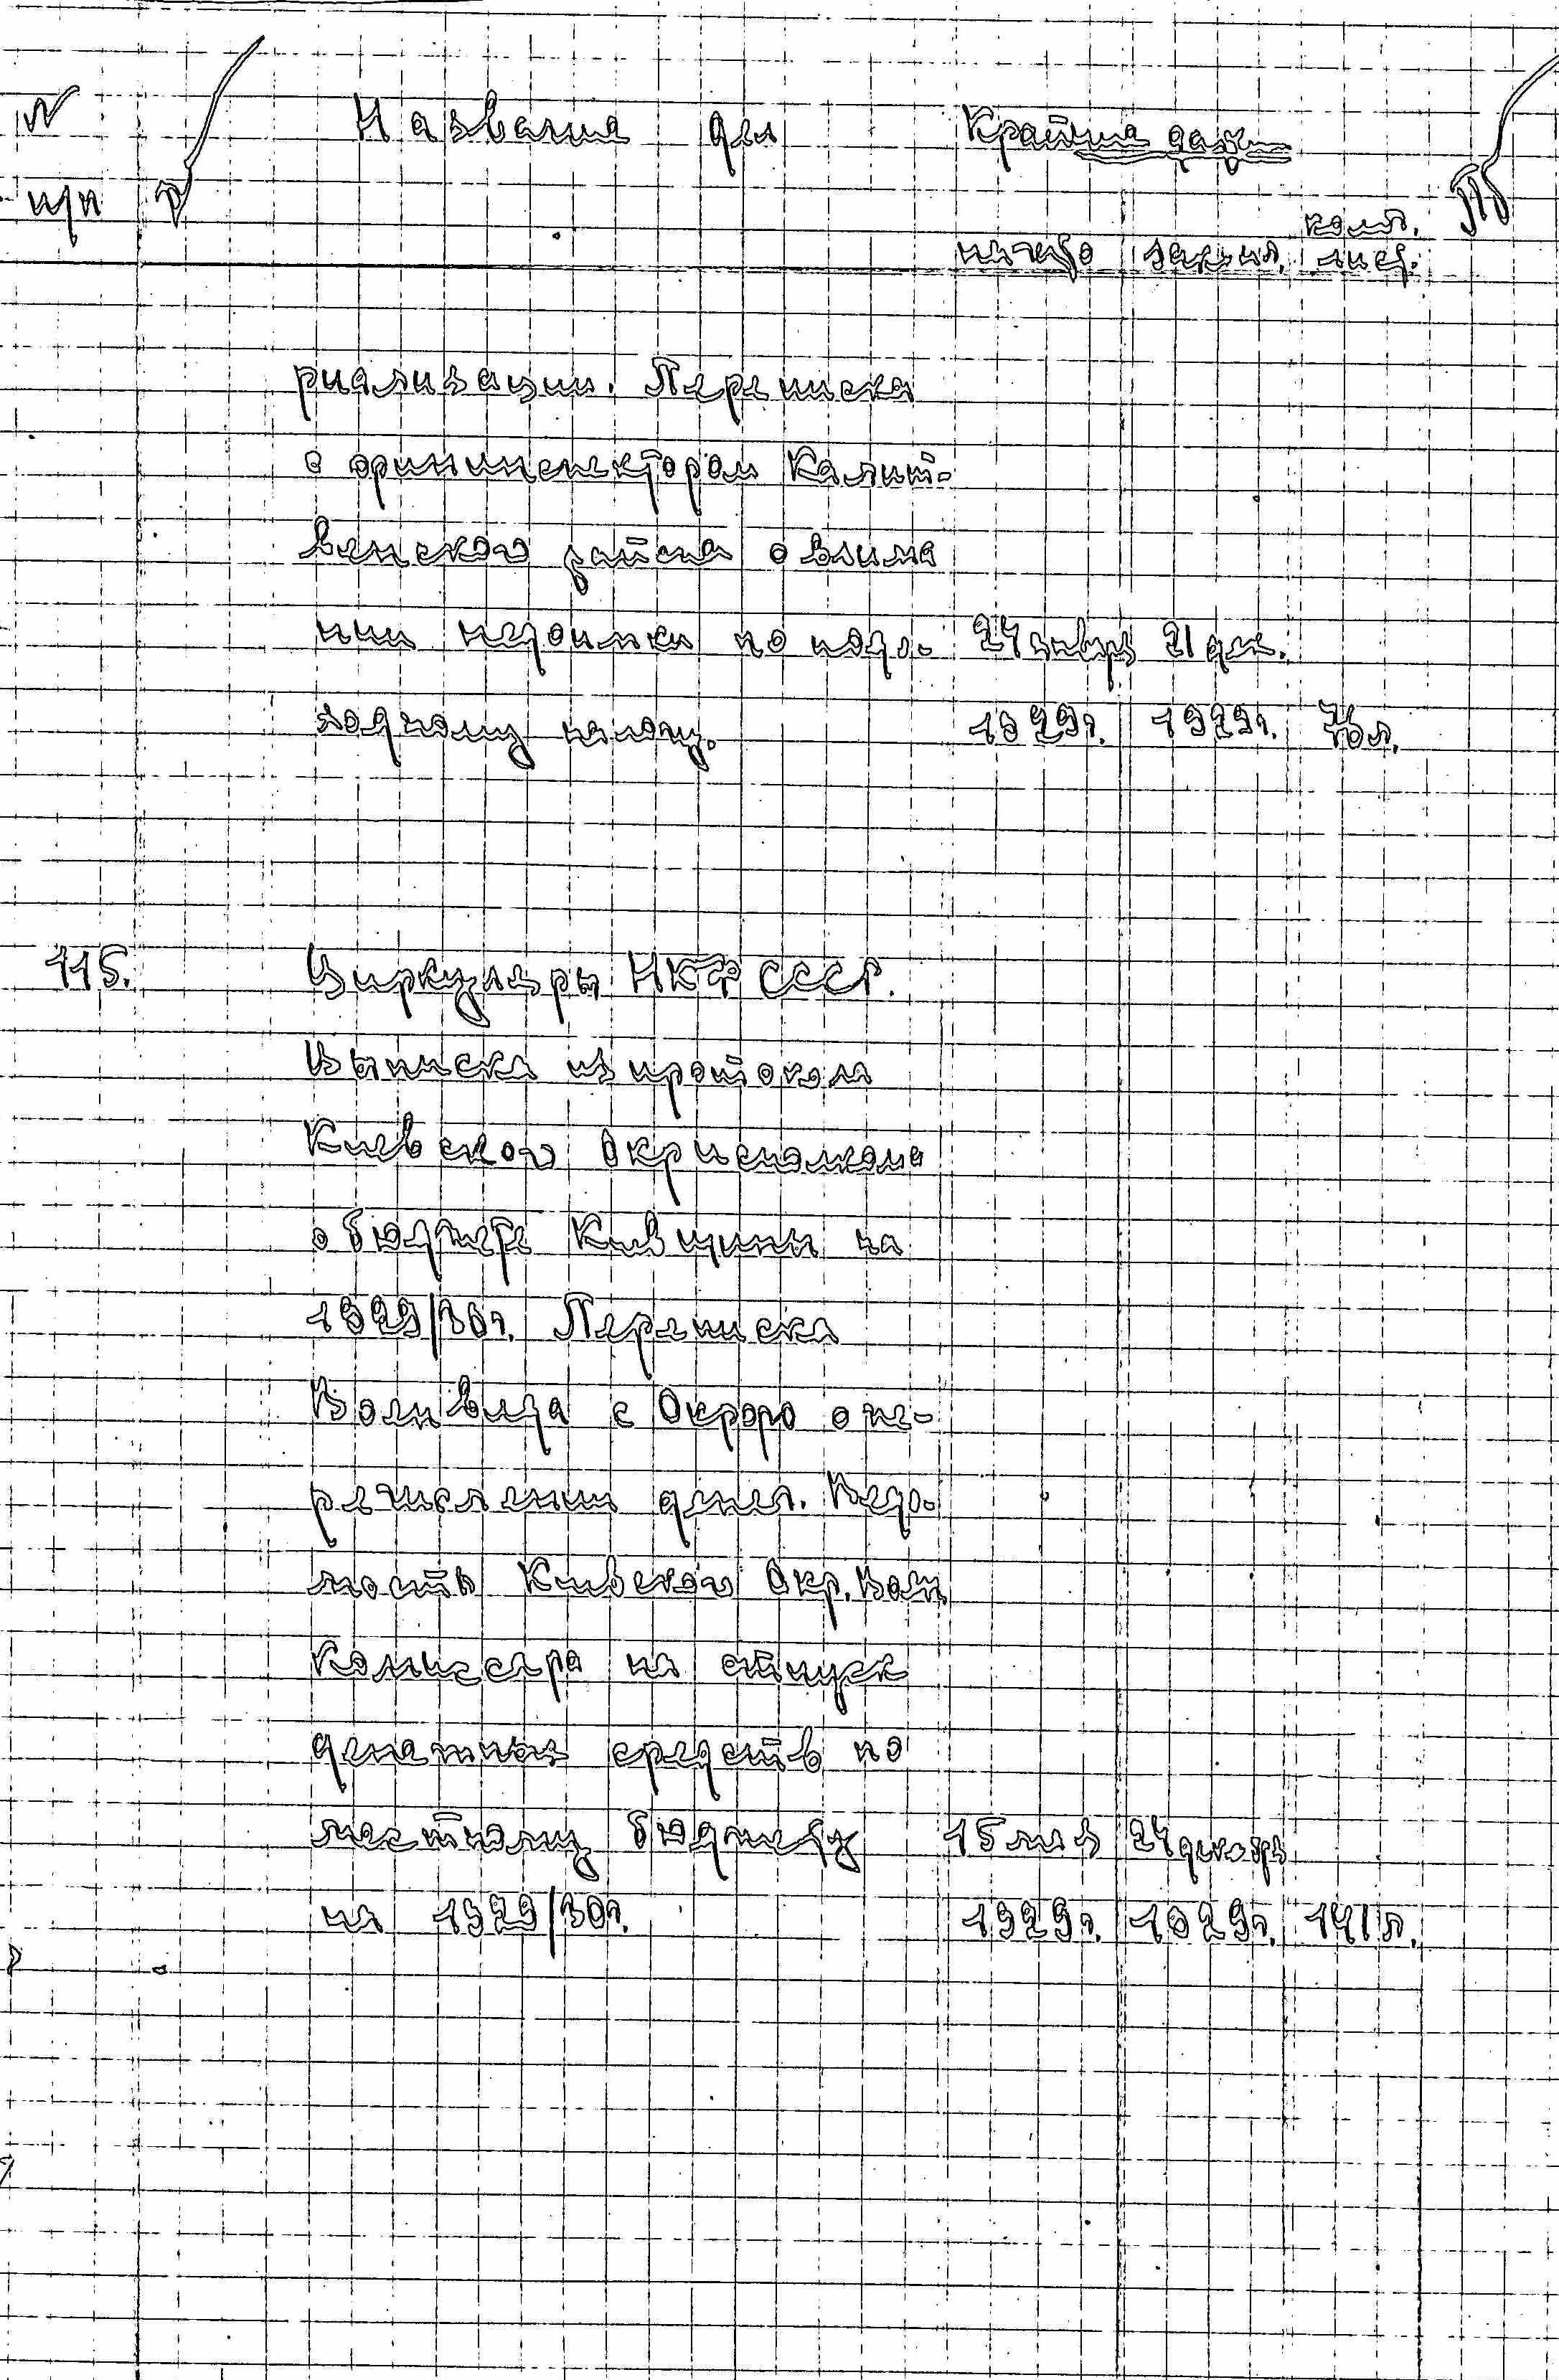 № Название дел Крайние даты
п/п
колич.
начало закрыт. лист.
риализации. Переписка
с фининспектором Калит-
венского района о взима
нии недоимки по подо- 24 январь 21 дек.
ходному налогу. 1929г. 1929г. 76 л.
115. Циркуляры НКФ СССР.
Выписка из протокола
Киевского Окрисполкома
о бюджете Киевщины на
1929/30г. Переписка
Военведа с Окрфо о пе-
речислении денег. Ведо-
мость Киевского Окр. Воен
Комиссара на отпуск
денежных средств по
местному бюджету 15 мая 24 декабрь
на 1929/30г. 1929г. 1929г. 141 л.